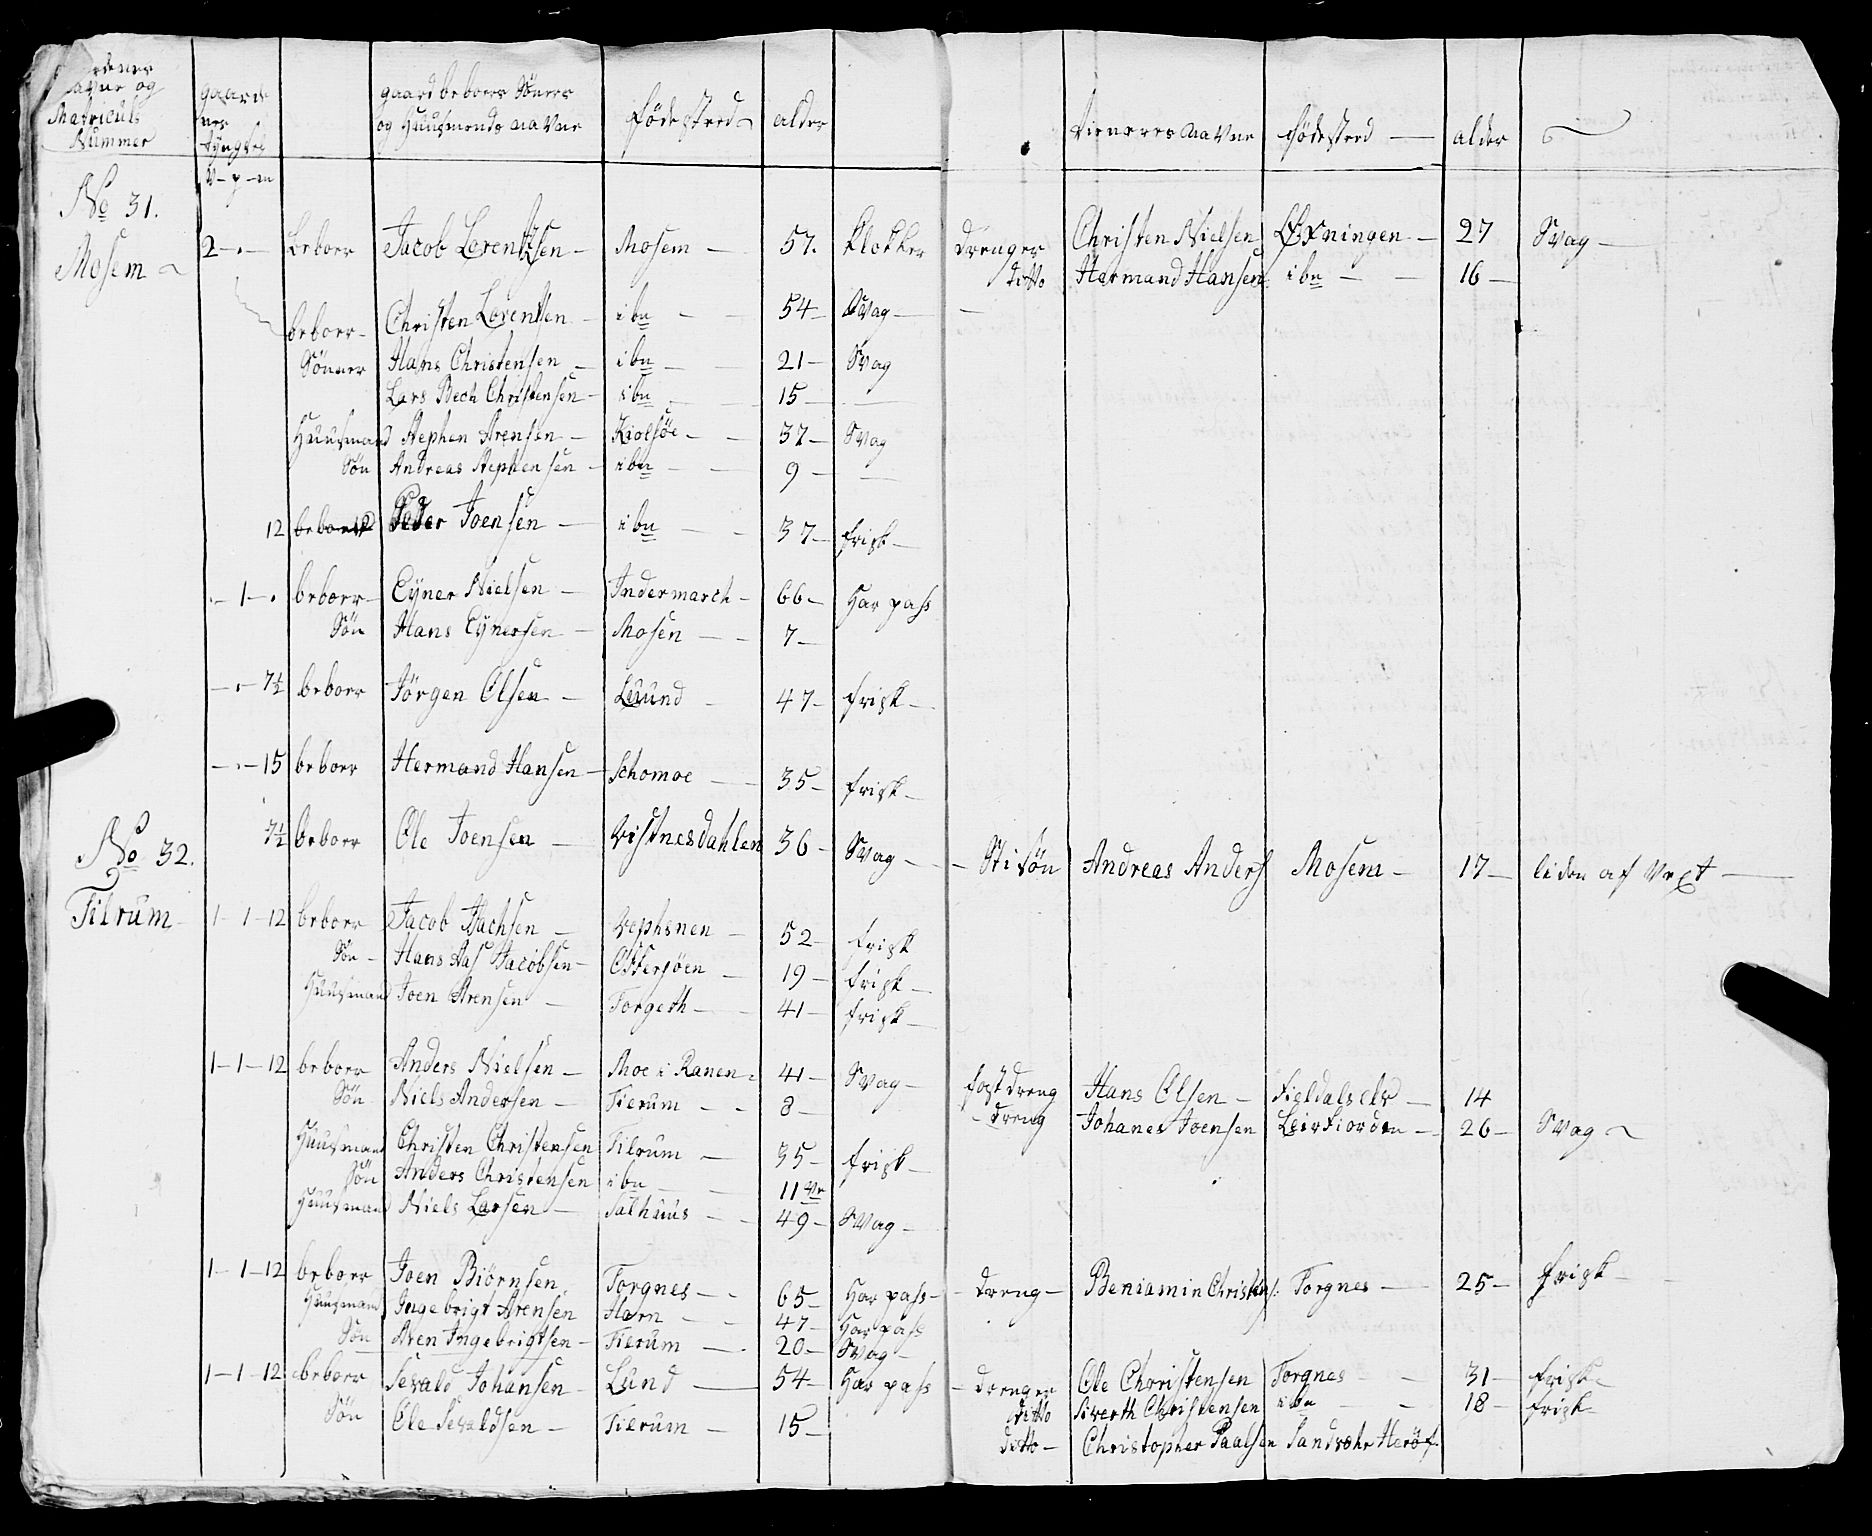 navne og
Matriculs
Nummer
gaarde
nes
tyngsel
V - p - m
gaard beboers Söners
og Huusmends navne
födested
alder
tieneres navne
födested
alder
No 31.
Mosem
2 - . - beboer Jacob Lorentzsen - Mosem - 57. klokker drenger Christen Nielsen - 27 Svag -
ditto Hermand Hansen ibn - - 16 -
beboer - Christen Lorentsen - ibn - - 54 - Svag -
Sönner Hans Christensen - ibn - - 21 - Svag
Lars Bech Christensen - ibn - - 15 -
Huusmand Stephen Arensen - Kiolsöe - - 37 - Svag
Sön Andreas Stephensen - ibn - - 9 -
12 Peder Joensen - ibn - - 37 - frisk -
. - 1 - . beboer - Eyner Nielsen - Indermarch - 66 - Har pass
Sön Hans Eynersen - Mosen - - 7 -
- . - 7½ beboer Jörgen Olsen - Lund - 47 - frisk -
- . - 15 beboer Hermand Hansen - Schomoe - 35 - frisk -
7½ beboer Ole Joensen - Vistnesdahlen 36 - Svag - - Stisön Andreas Anders Mosem - 17 - liden af Vext -
No 32.
Tilrum
1 - 1 - 12 beboer Jacob - - 52 - frisk
Sön - Hans Jacobsen - - 19 - frisk -
Huusmand Joen Arensen - Forgeth - - 41 - frisk -
1 - 1 - 12 beboer Anders Nielsen - Moe i Ranen - 41 - Svag -
Sön Niels Andersen - Tilrum - - 8 - fost dreng Hans Olsen - - 14
- dreng Johanes Joensen Leirfiorden - 26 - Svag
Huusmand Christen Christensen Tilrum - 35 - frisk -
Sön Anders Christensen ibn - - 11
Huusmand Niels Larsen - Salhuus - - 49 - Svag -
1 - 1 - 12 beboer Joen Biörnsen Torgnes - - 65 - Har pass - - dreng - Beniamin Torgnes - 25 - frisk -
Huusmand Ingebrigt Arensen Horn - - 47 - Har pass
Sön Aren Ingebrigtsen - Tilrum - . 20 - Svag -
1 - 1 - 12 beboer Sevald Johansen - Lund - 54 - Har pass - drenger Ole Christensen Torgnes - - 31 - frisk -
Sön Ole Sevaldsen - Tilrum - 15 - ditto Siverth Christensen ibn - - 18 - frisk -
ditto - Christopher Paalsen